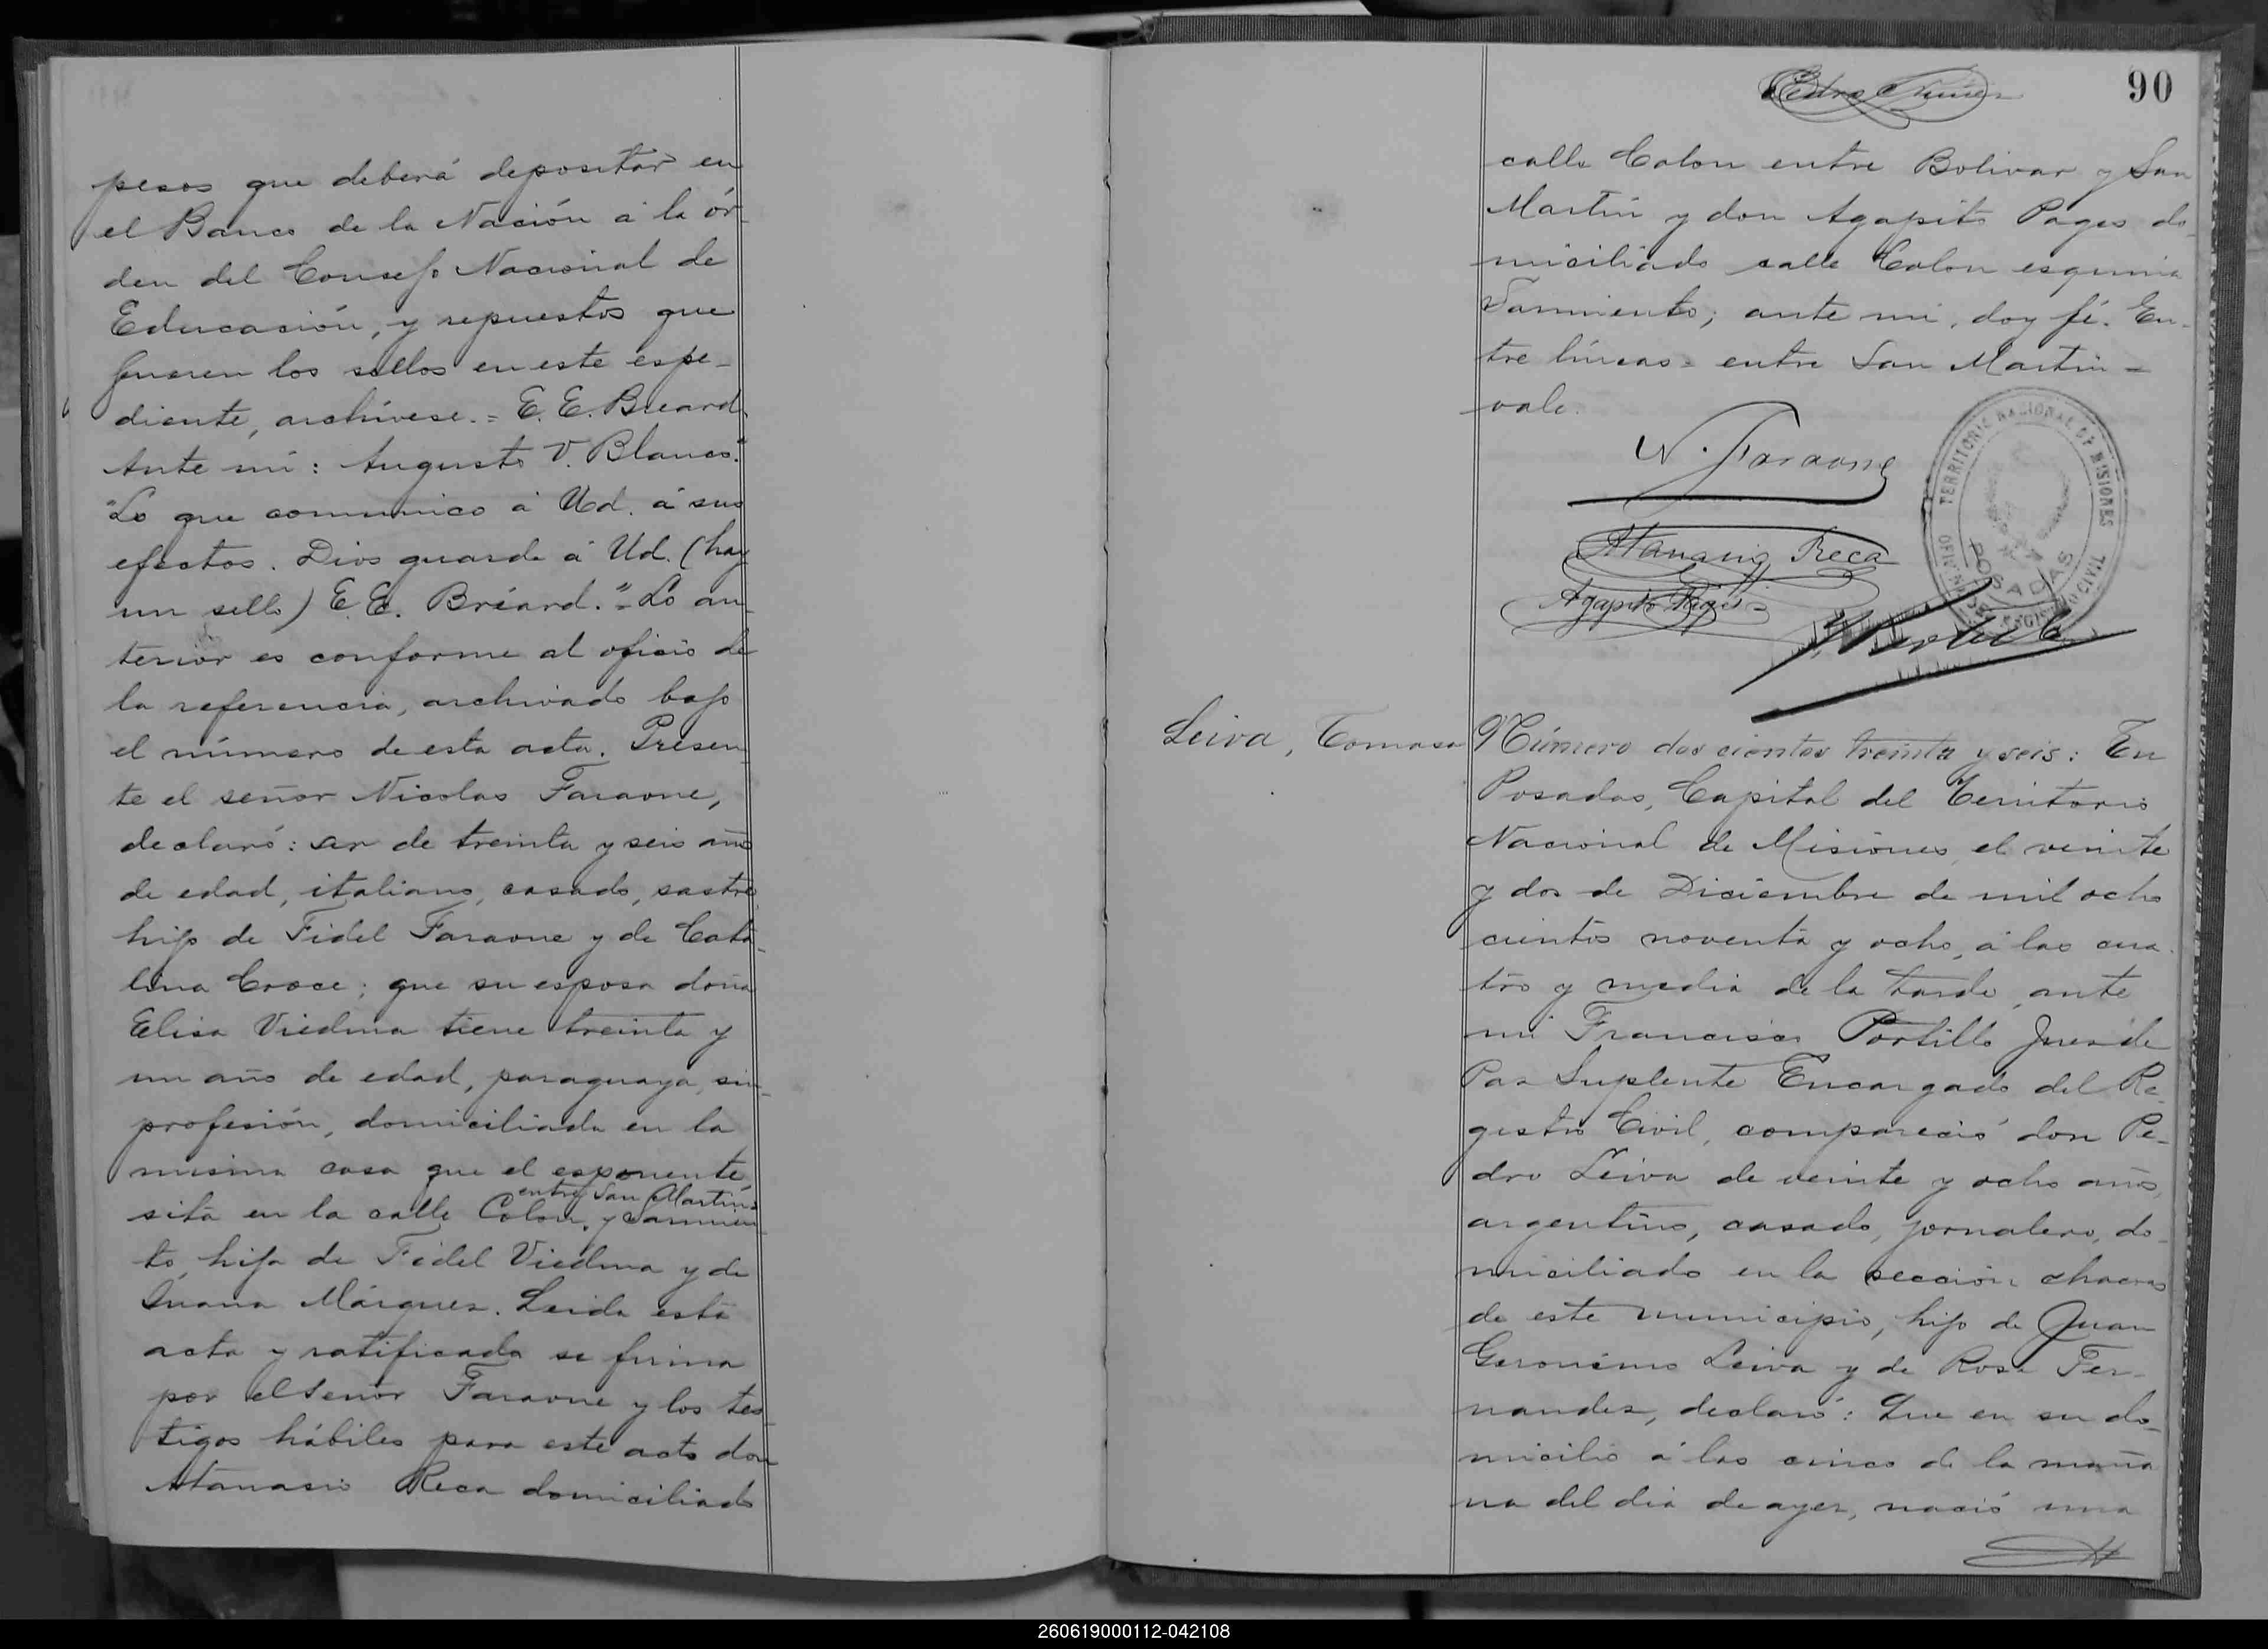 pesos que deberá depositar en
el Banco de la Nación á la ór-
den del Consejo Nacional de
Educación, y repuestos que
fueren los sellos en este espe-
diente, archívese. = E. E. Breard.
Ante mí: Augusto V. Blanco."
"Lo que comunico á Ud. á sus
efectos. Dios guarde á Ud. (hay
un sello) E. E. Bréard." = Lo an-
terior es conforme al oficio de
la referencia, archivado bajo
el número de esta acta. Presen-
te el señor Nicolas Faraone,
declaró: ser de treinta y seis años
de edad, italiano, casado, sastre,
hijo de Fidel Faraone y de Cata-
lina Croce; que su esposa doña
Elisa Viedma tiene treinta y
un año de edad, paraguaya, sin
profesión, domiciliada en la
misma casa que el esponente,
entre San Martin
sita en la calle Colon, y Sarmien
to, hija de Fidel Viedma y de
Juana Márquez. Leida esta
acta y ratificada se firma
por el señor Faraone y los tes-
tigos hábiles para este acto don
Atanasio Reca domiciliado
Pedro Nuñez
90
calle Colon entre Bolivar y San
Martin y don Agapito Pages do-
miciliado calle Colon esquina
Sarmiento; ante mi, doy fé. En-
tre líneas = entre San Martin =
vale.
N. Faraone
Atanasio Reca
Agapito Pagés
F. Portillo
TERRITORIO NACIONAL DE MISIONES
POSADAS
OFICINA DEL REGISTRO CIVIL
Leiva, Tomasa
Número dos cientos treinta y seis: En
Posadas, Capital del Territorio
Nacional de Misiones, el veinte
y dos de Diciembre de mil ocho
cientos noventa y ocho, á las cua-
tro y media de la tarde, ante
mi Francisco Portillo Juez de
Paz Suplente Encargado del Re-
gistro Civil, compareció don Pe-
dro Leiva de veinte y ocho años,
argentino, casado, jornalero, do-
miciliado en la sección chacras
de este municipio, hijo de Juan
Geronimo Leiva y de Rosa Fer-
nandez, declaró: Que en su do-
micilio á las cinco de la maña
na del dia de ayer, nació una
260619000112-042108